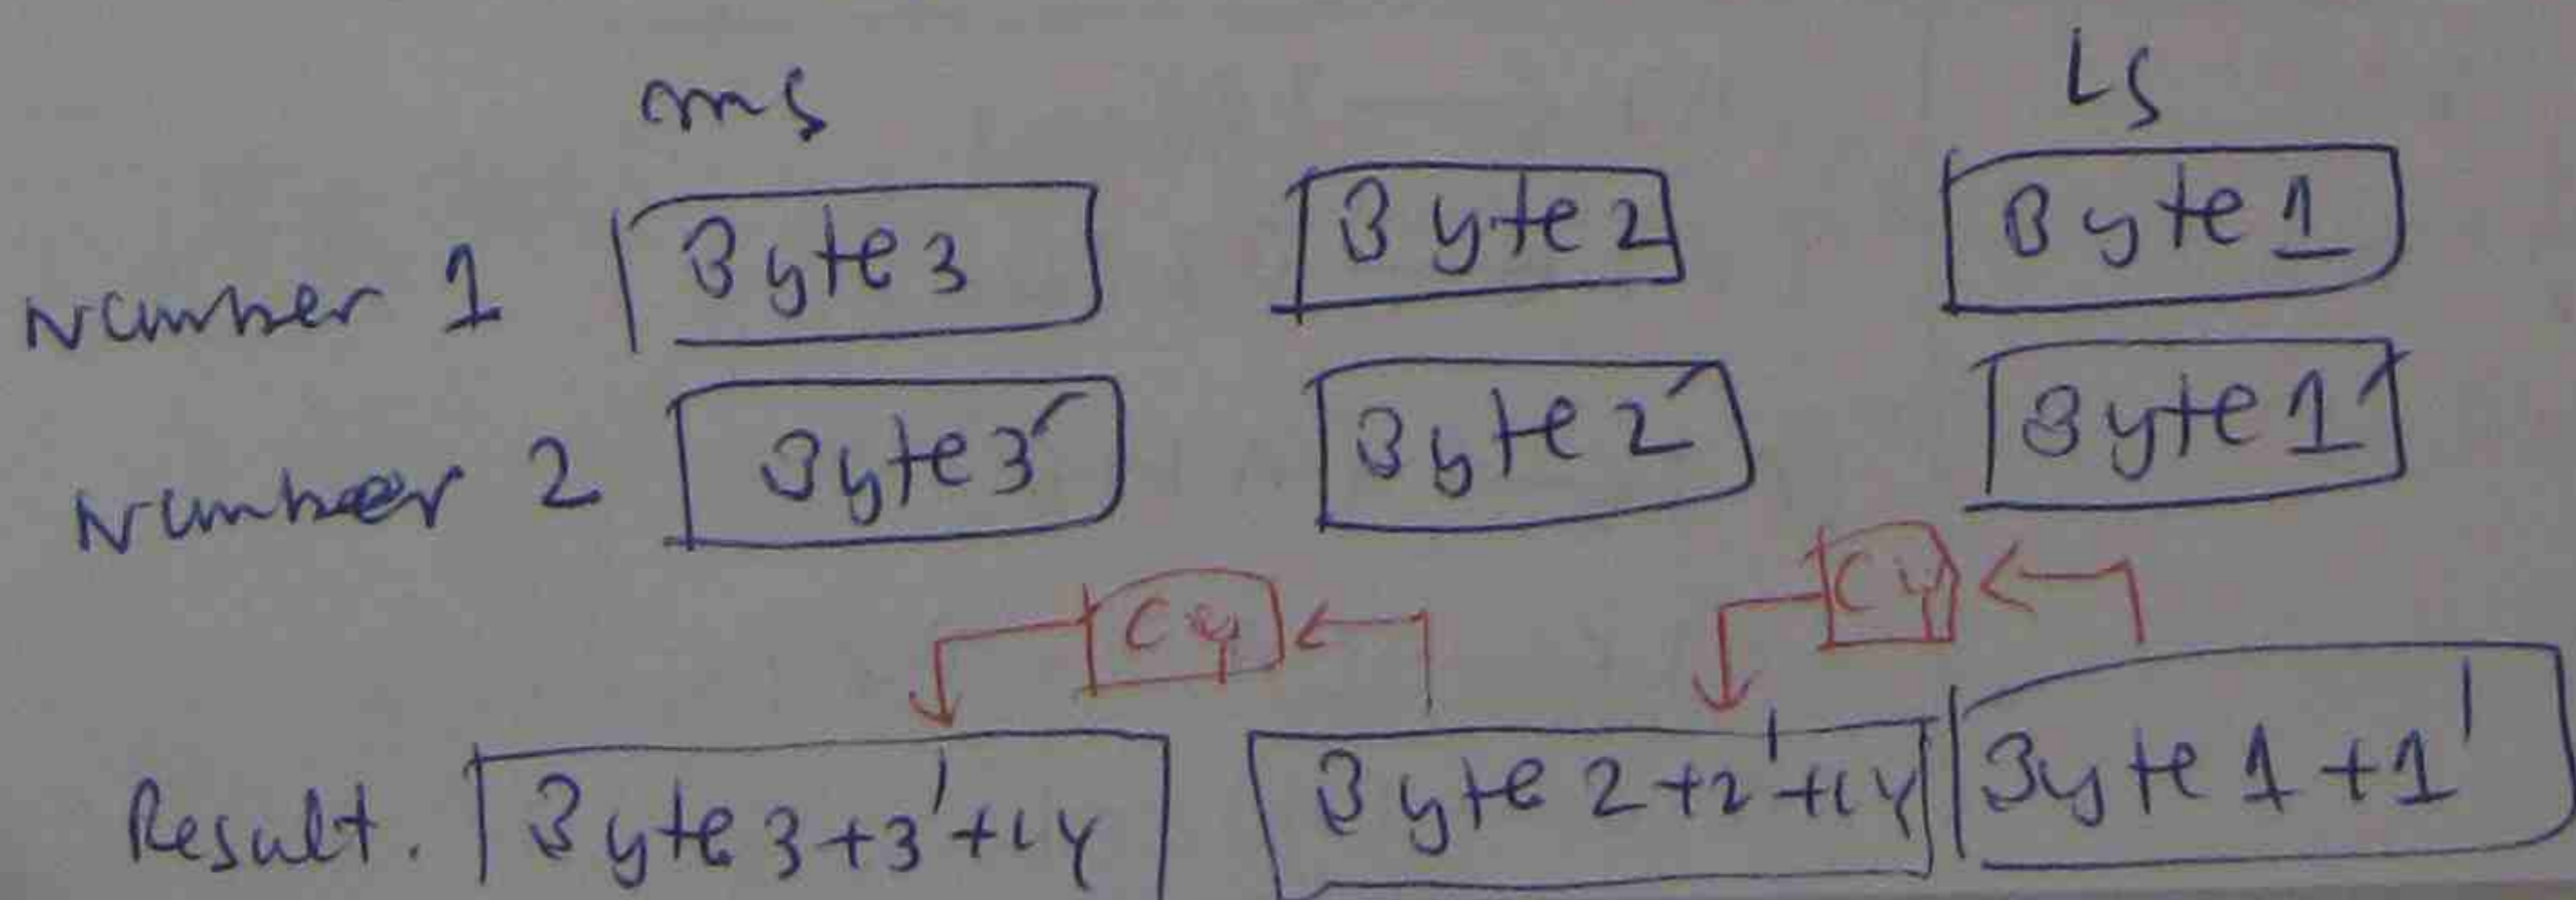 ms Ls
Number 1 Byte 3 Byte 2 Byte 1
Number 2 Byte 3' Byte 2' Byte 1'
Cy Cy
Result. Byte 3+3'+cy Byte 2+2'+cy Byte 1+1'